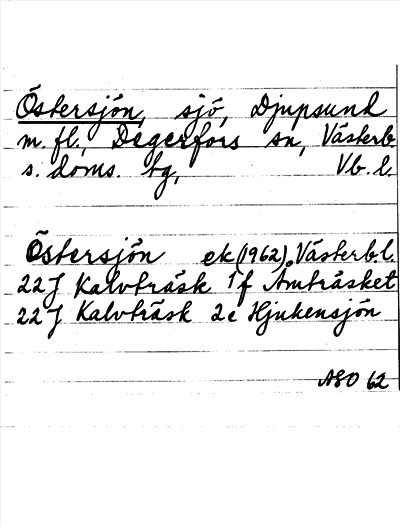 Östersjön, sjö, Djupsund
m.fl., Degerfors sn, Västerb.
s. doms. tg, Vb. l.
Östersjön ek (1962). Västerb.l.
22J Kalvträsk 1f Åmträsket
22J Kalvträsk 2e Hjukensjön
ASO 62